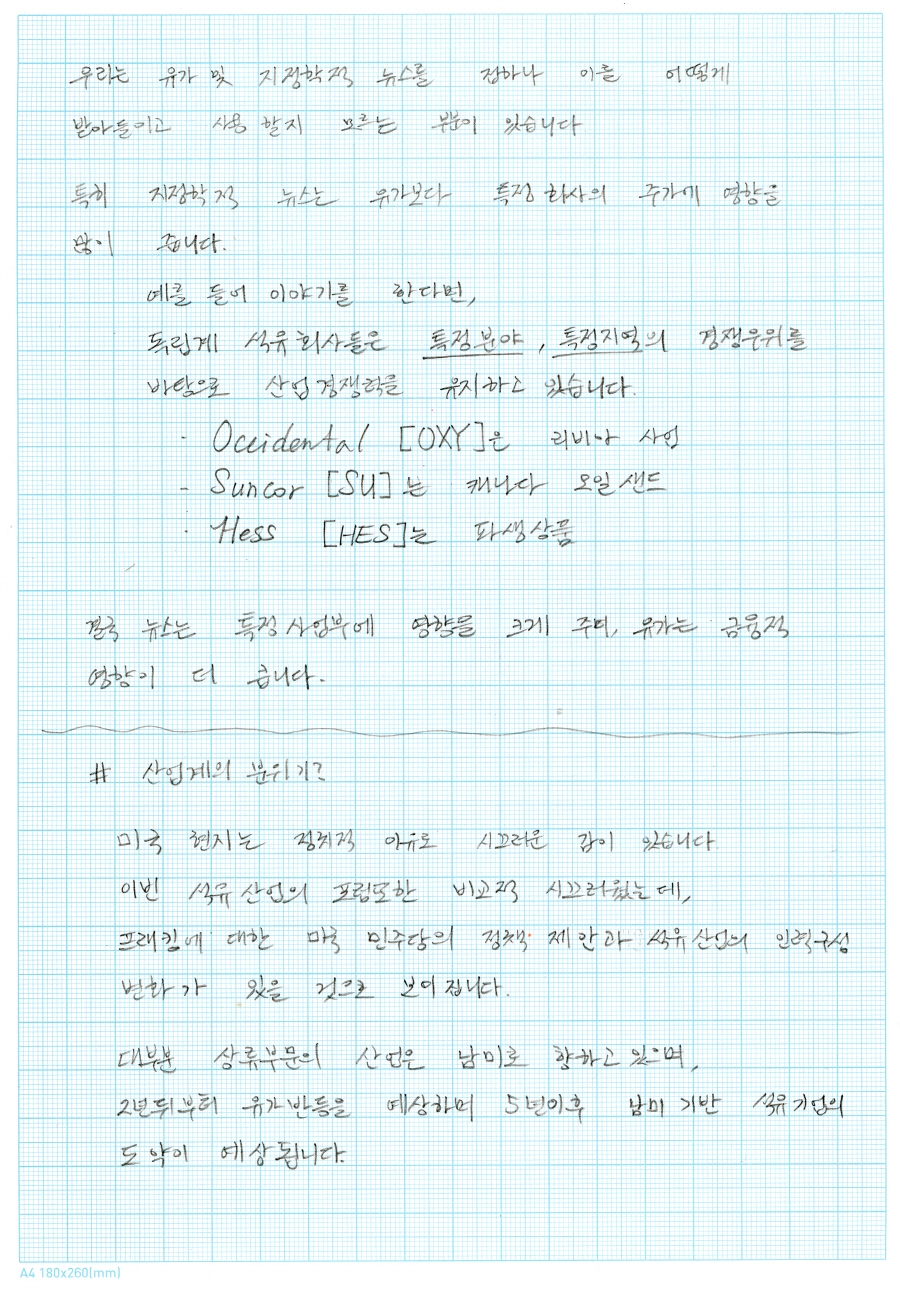 우리는 유가 및 지정학적 뉴스를 접하나 이를 어떻게
받아들이고 사용 할지 모르는 부분이 있습니다
특히 지정학적 뉴스는 유가보다 특정 회사의 주가에 영향을
많이 줍니다.
예를 들어 이야기를 한다면,
독립계 석유회사들은 특정분야, 특정지역의 경쟁우위를
바탕으로 산업경쟁력을 유지하고 있습니다.
· Occidental [OXY]은 리비아 사업
- Suncor [SU]는 캐나다 오일샌드
· Hess [HES]는 파생상품
결국 뉴스는 특정사업부에 영향을 크게 주며, 유가는 금융적
영향이 더 큽니다.
# 산업계의 분위기?
미국 현지는 정치적 이유로 시끄러운 감이 있습니다.
이번 석유산업의 포럼또한 비교적 시끄러웠는데,
프래킹에 대한 미국 민주당의 정책 제안과 석유산업의 인력구성
변화가 있을 것으로 보여집니다.
대부분 상류부문의 산업은 남미로 향하고 있으며,
2년뒤부터 유가반등을 예상하며 5년이후 남미 기반 석유기업의
도약이 예상됩니다.
A4 180x260(mm)